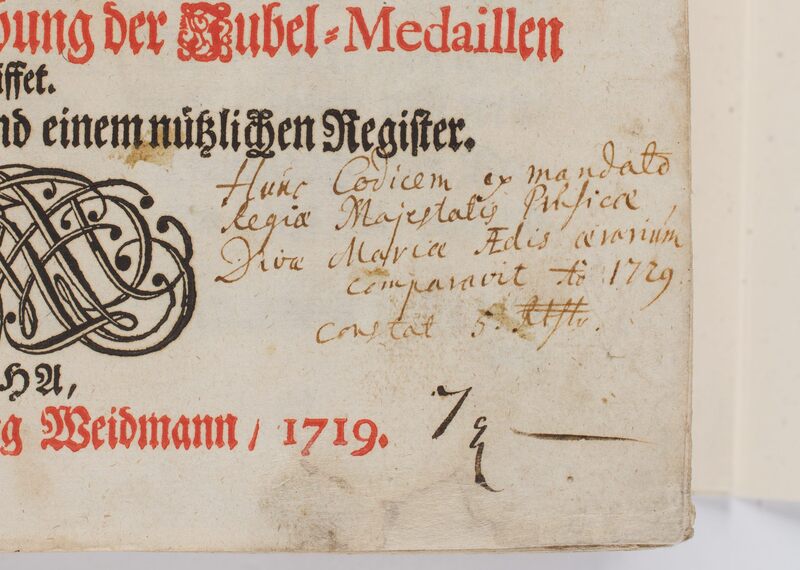 bung der Jubel-Medaillen
iffet.
nd einem nützlichen Register.
Hunc Codicem ex mandato
Regiæ Majestatis Prusicæ,
Divæ Mariæ Ædis ærarium
comparavit Ao 1729
constat 5.
HA,
rg Weidmann / 1719.